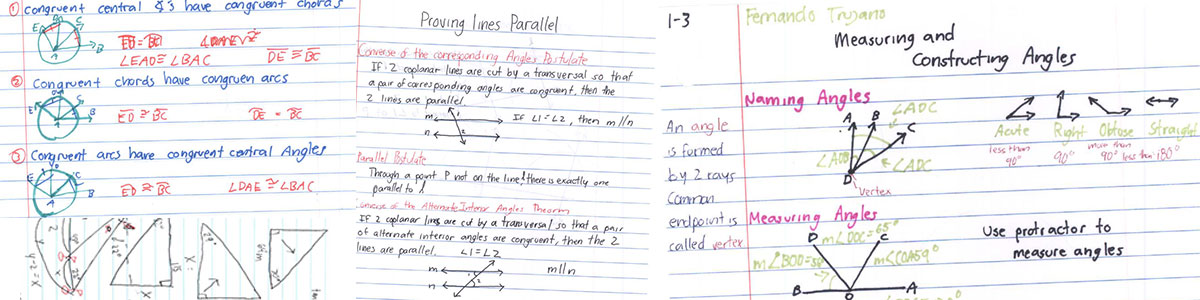 ① Congruent central ∠'s have congruent chords
E
C
B
A
∠EAD ≅ ∠BAC
DE ≅ BC
② Congruent chords have congruen arcs
E
B
A
ED ≅ BC
DE = BC
③ Congruent arcs have congruent central Angles
E
C
B
A
ED ≅ BC
∠DAE ≅ ∠BAC
y-2=x
22°
15
X
X=
Proving lines Parallel
Converse of the corresponding Angles Postulate
If 2 coplanar lines are cut by a transversal so that
a pair of corresponding angles are congruent, then the
2 lines are parallel.
m
n
1
2
If ∠1=∠2, then m//n
Parallel Postulate
Through a point P not on the line l there is exactly one
parallel to l
Converse of the Alternate Interior Angles Theorem
If 2 coplanar lines are cut by a transversal so that a pair
of alternate interior angles are congruent, then the 2
lines are parallel.
∠1=∠2
m
n
1
2
m//n
1-3
Fernando Trujano
Measuring and
Constructing Angles
Naming Angles
An angle
is formed
by 2 rays
Common
endpoint is
called vertex
A
B
C
D
∠ADC
∠ADB
∠ADC
Vertex
Acute
less than
90°
Right
90°
Obtose
more than
90° less than 180°
Straight
Measuring Angles
D
m∠DOC=65°
C
m∠BOD=
B
O
A
Use protractor to
measure angles